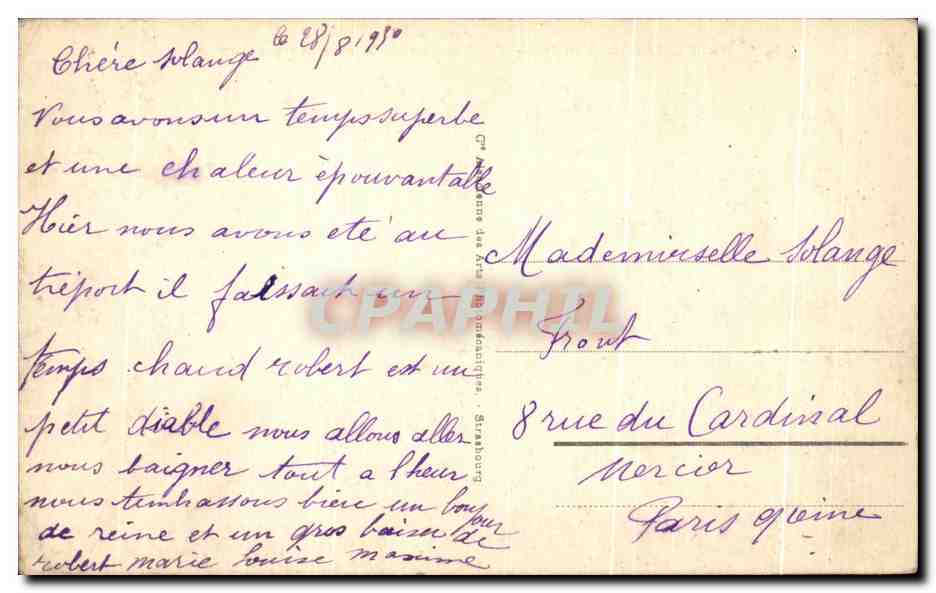 le 28/8 1930
Chère solange
Nous avons un temps superbe
et une chaleur épouvantable
Hier nous avons eté au
tréport il faissait un
temps chaud robert est un
petit diable nous allons aller
nous baigner tout a lheur
nous tembrassons bien un bonjour
de reine et un gros baiser de
robert marie louise maxime
Mademoiselle Solange
Front
8 rue du Cardinal
Mercier
Paris 9ieme
Cie des Arts Photomécaniques. - Strasbourg
CPAPHIL